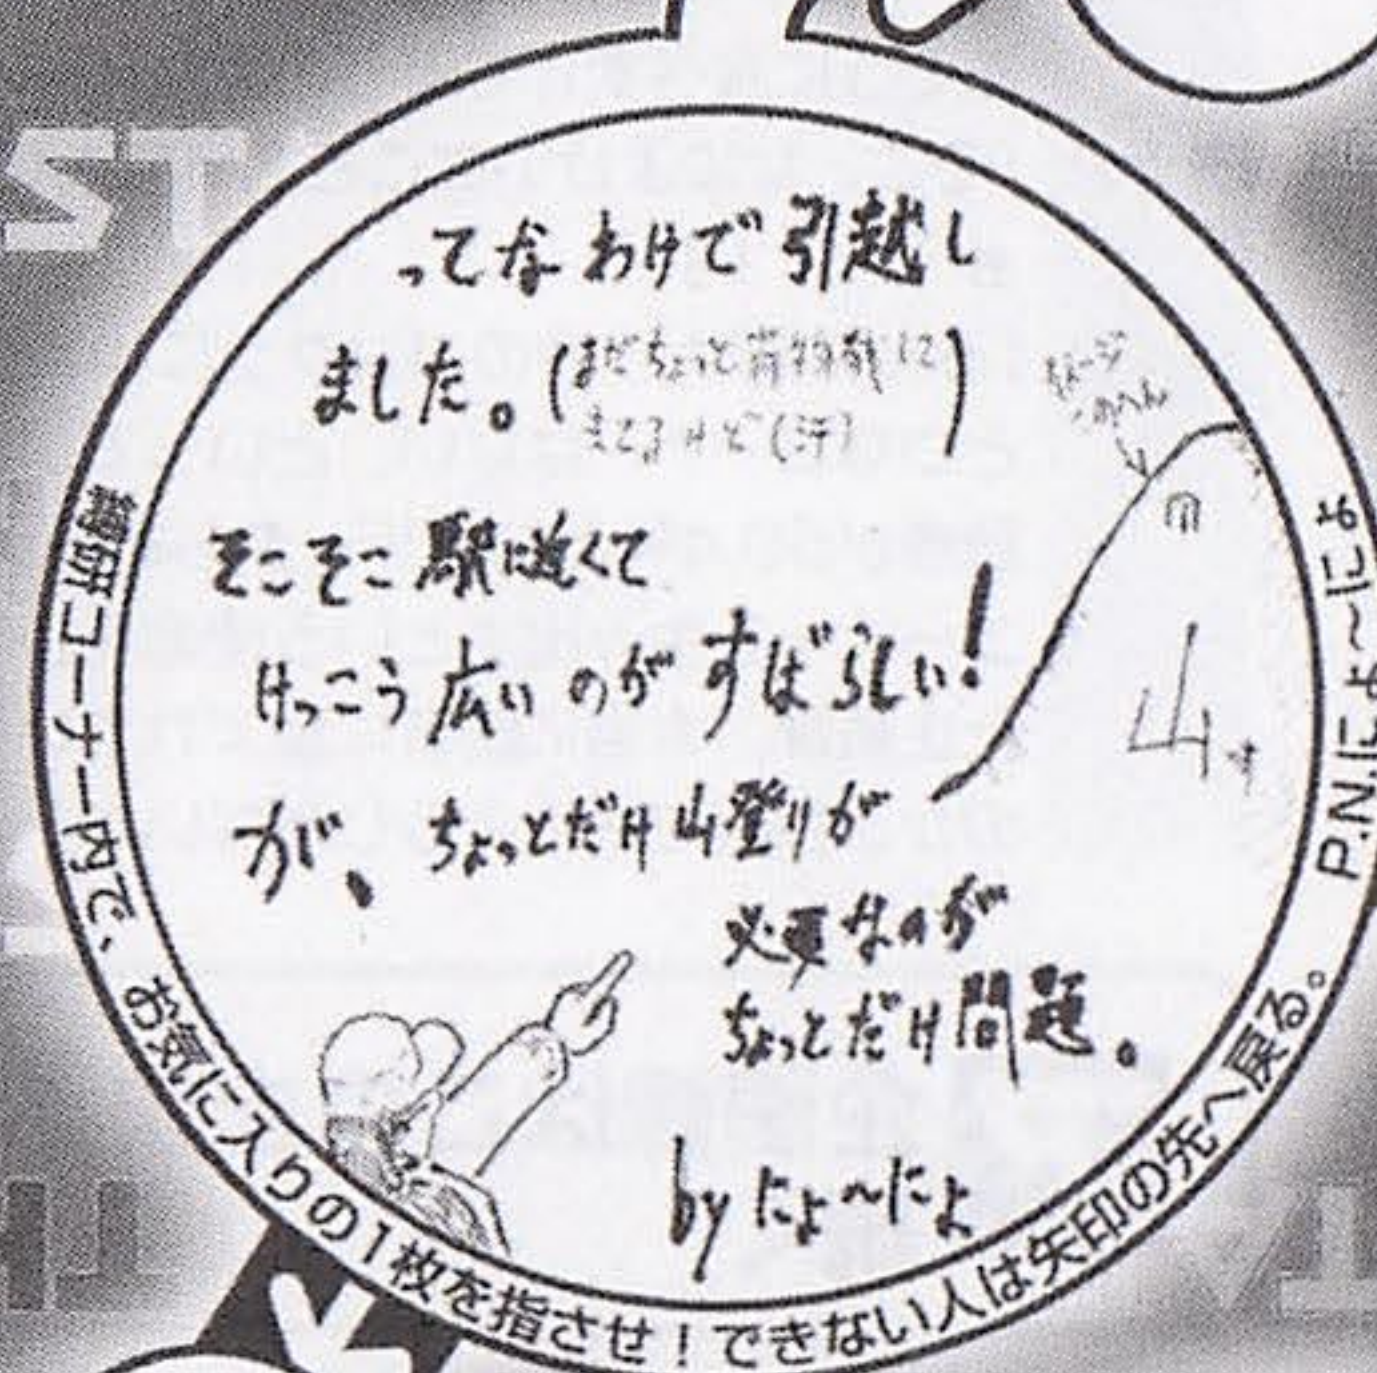 ってなわけで引越し
ました。(まだちょっと荷物残
けど(汗))
このへん
山
そこそこ駅に近くて
けっこう広いのがすばらしい!
が、ちょっとだけ山登りが
必要なのが
ちょっとだけ問題。
by にょ〜にょ
研コーナー内で、お気に入りの1枚を指させ!できない人は矢印の先へ戻る。
P.N.にょ〜にょ
ST